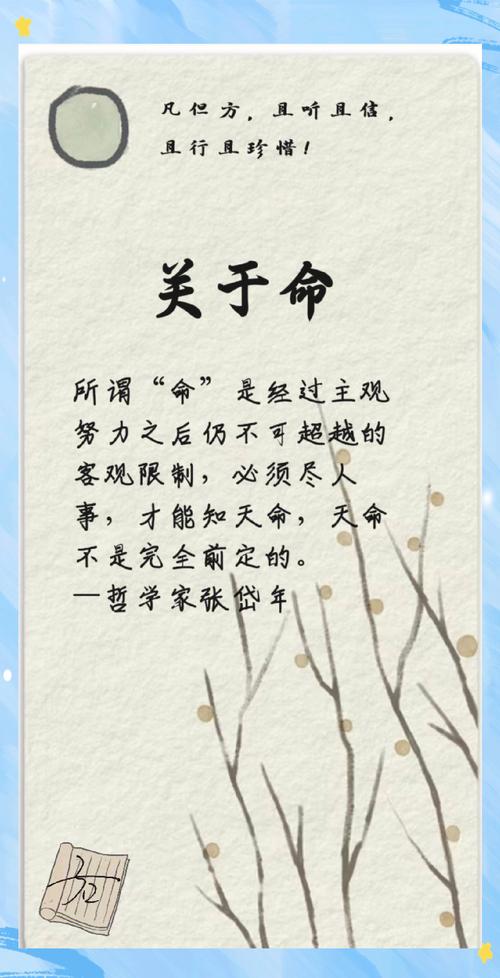 凡但方，且听且信，
且行且珍惜！
关于命
所谓“命”是经过主观
努力之后仍不可超越的
客观限制，必须尽人
事，才能知天命，天命
不是完全前定的。
—哲学家张岱年